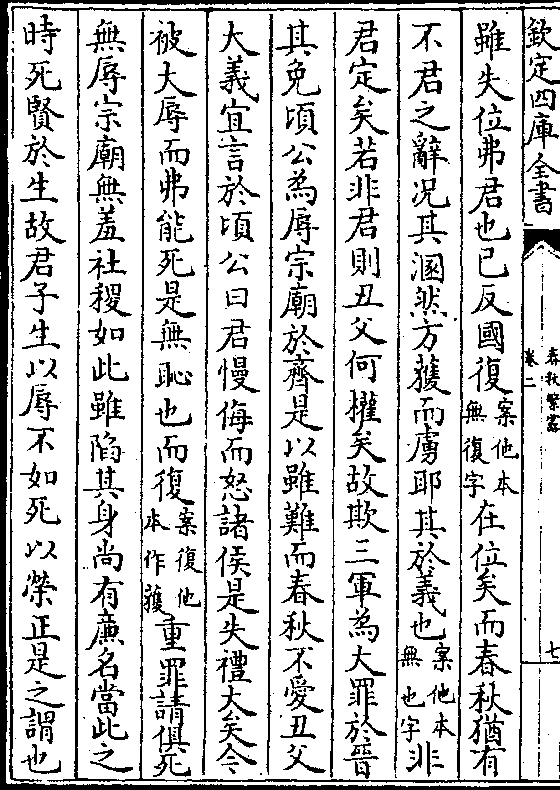 欽定四庫全書
春秋繁露
卷二
七
雖失位弗君也已反國復案他本無復字在位矣而春秋猶有
不君之辭况其溷然方獲而虜耶其於義也案他本無也字非
君定矣若非君則丑父何權矣故欺三軍為大罪於晉
其免頃公為辱宗廟於齊是以雖難而春秋不愛丑父
大義宜言於頃公曰君慢侮而怒諸侯是失禮大矣今
被大辱而弗能死是無恥也而復案復他本作獲重罪請俱死
無辱宗廟無羞社稷如此雖陷其身尚有廉名當此之
時死賢於生故君子生以辱不如死以榮正是之謂也